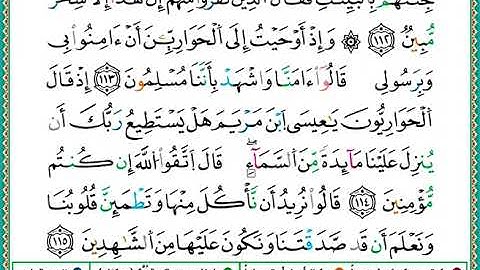 جِئْتَهُم بِٱلْبَيِّنَٰتِ فَقَالَ ٱلَّذِينَ كَفَرُوا۟ مِنْهُمْ إِنْ هَٰذَآ إِلَّا سِحْرٌ
مُّبِينٌ ١١٢ وَإِذْ أَوْحَيْتُ إِلَى ٱلْحَوَارِيِّۦنَ أَنْ ءَامِنُوا۟ بِى
وَبِرَسُولِى قَالُوٓا۟ ءَامَنَّا وَٱشْهَدْ بِأَنَّنَا مُسْلِمُونَ ١١٣ إِذْ قَالَ
ٱلْحَوَارِيُّونَ يَٰعِيسَى ٱبْنَ مَرْيَمَ هَلْ يَسْتَطِيعُ رَبُّكَ أَن
يُنَزِّلَ عَلَيْنَا مَآئِدَةً مِّنَ ٱلسَّمَآءِ ۖ قَالَ ٱتَّقُوا۟ ٱللَّهَ إِن كُنتُم
مُّؤْمِنِينَ ١١٤ قَالُوا۟ نُرِيدُ أَن نَّأْكُلَ مِنْهَا وَتَطْمَئِنَّ قُلُوبُنَا
وَنَعْلَمَ أَن قَدْ صَدَقْتَنَا وَنَكُونَ عَلَيْهَا مِنَ ٱلشَّٰهِدِينَ ١١٥